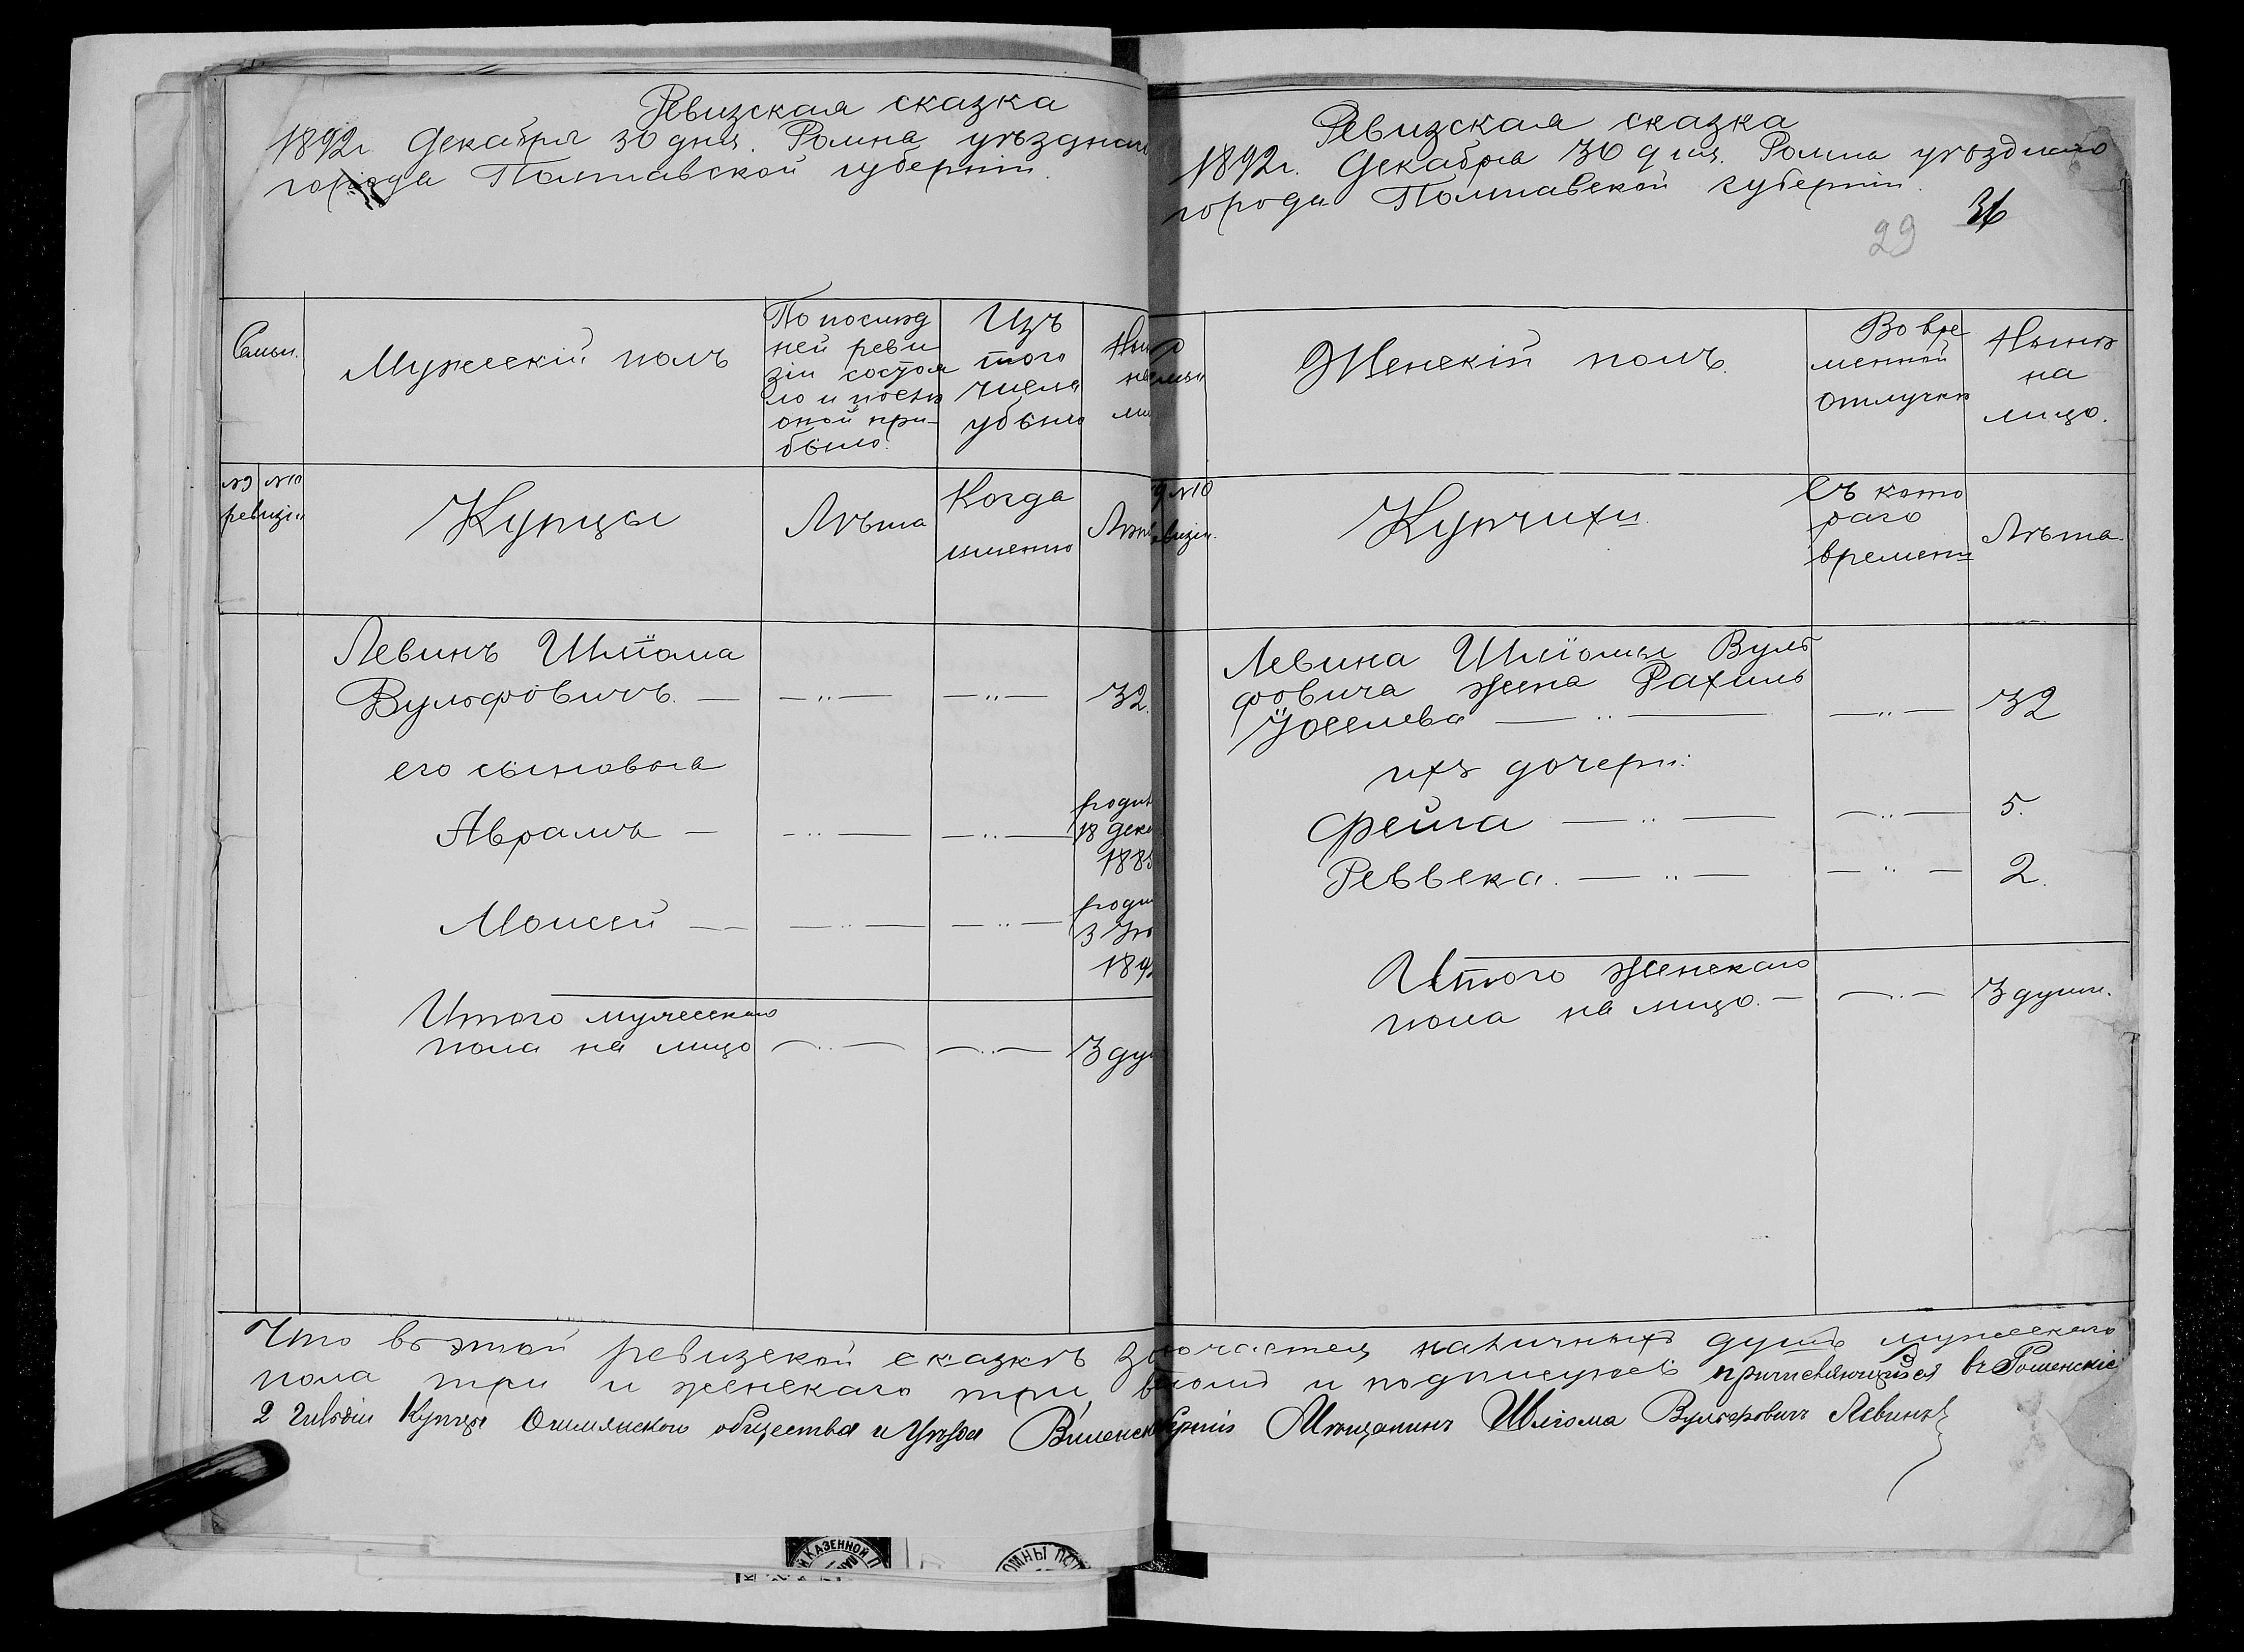 Ревизская сказка
1892г. Декабря 30 дня. Ромна уѣзднаго
города Полтавской губерніи.
Семьи.
Мужескій полъ
По послѣд
ней реви
зіи состоя
ло и послѣ
оной при-
было.
Изъ
того
числа
убыло
№9 №10
ревизіи
Купцы
Лѣта
Когда
именно
Левинъ Шліома
Вульфовичъ. — — „ — — „ — 32.
его сыновья
Абрамъ — — „ — — „ —
18 дека
188
Моисей — — „ — — „ —
3
Итого мужескаго
пола на лицо — „ — — „ — 3 ду
Ревизская сказка
1892г. Декабря 30 дня. Ромна уѣзднаго
города Полтавской губерніи.
29
36
Женскій полъ.
Во вре
менной
отлучкѣ
Нынѣ
на
лицо.
9 №10
визіи.
Купчихи
Съ кото
раго
времени
Лѣта.
Левина Шліомы Вуль
фовича жена Рахиль
Іоселева — „ — — „ — 32
ихъ дочери:
Фейга — „ — — „ — 5.
Реввека. — „ — — „ — 2.
Итого женскаго
пола на лицо. — — „ — 3 души.
Что въ этой ревизской сказкѣ значается наличныхъ душъ мужескаго
пола три и женскаго три, въ томъ и подписуюсь причисляющійся въ Роменскіе
2 гильдіи Купцы Ошмянскаго общества и Уѣзда Виленск Мѣщанинъ Шліома Вульфовичъ Левинъ
КАЗЕННОЙ П
ОМНЫ ПОЛ